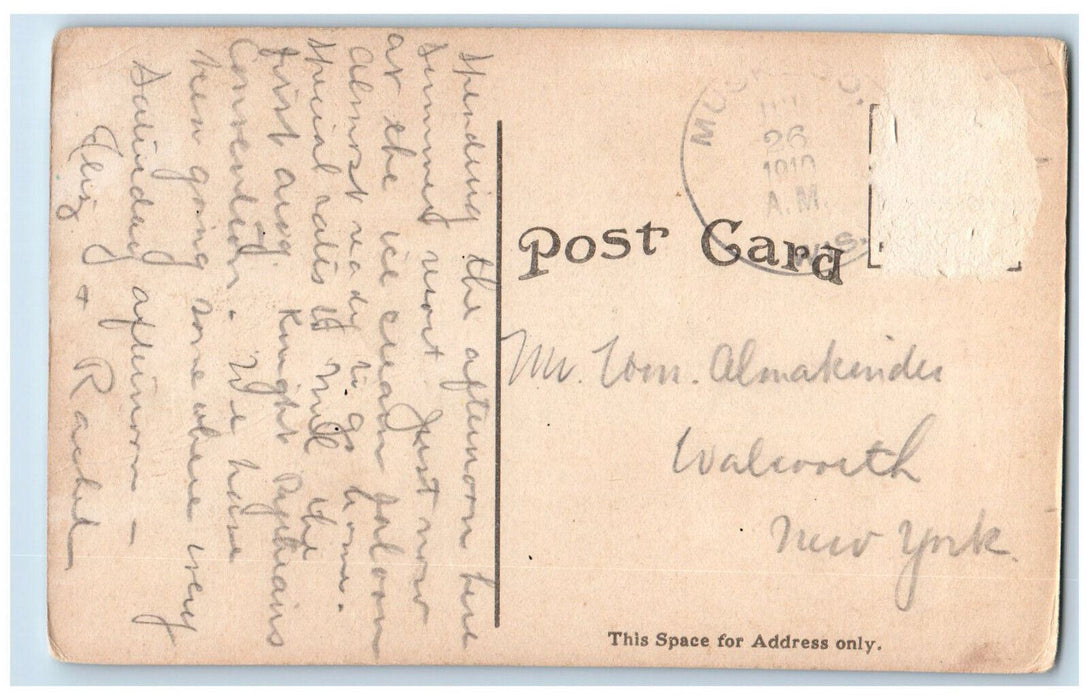 Spending the afternoon here
summer resort Just now
at the ice cream saloon
almost ready to go home.
special rates till the
first aug. Knight Pythians
Convention. We have
been going some where every
Saturday afternoon —
& Rachel
26
1910
A.M.
Post Card
Mr. Wm. Almakinder
Walworth
New York.
This Space for Address only.